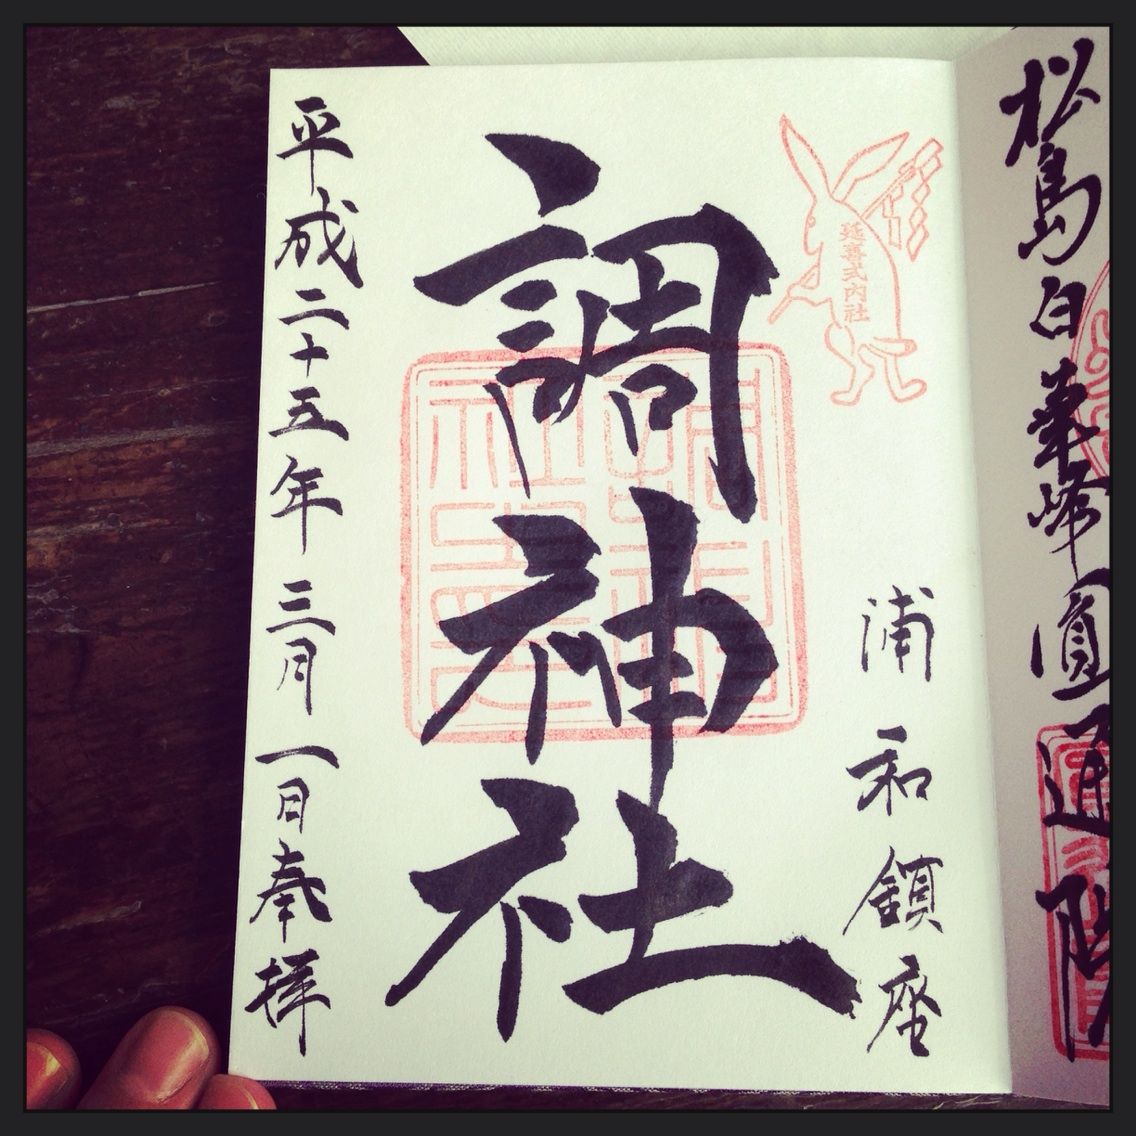 松島白華峰圓通院
延喜式内社
浦和鎮座
調神社
平成二十五年三月一日奉拝